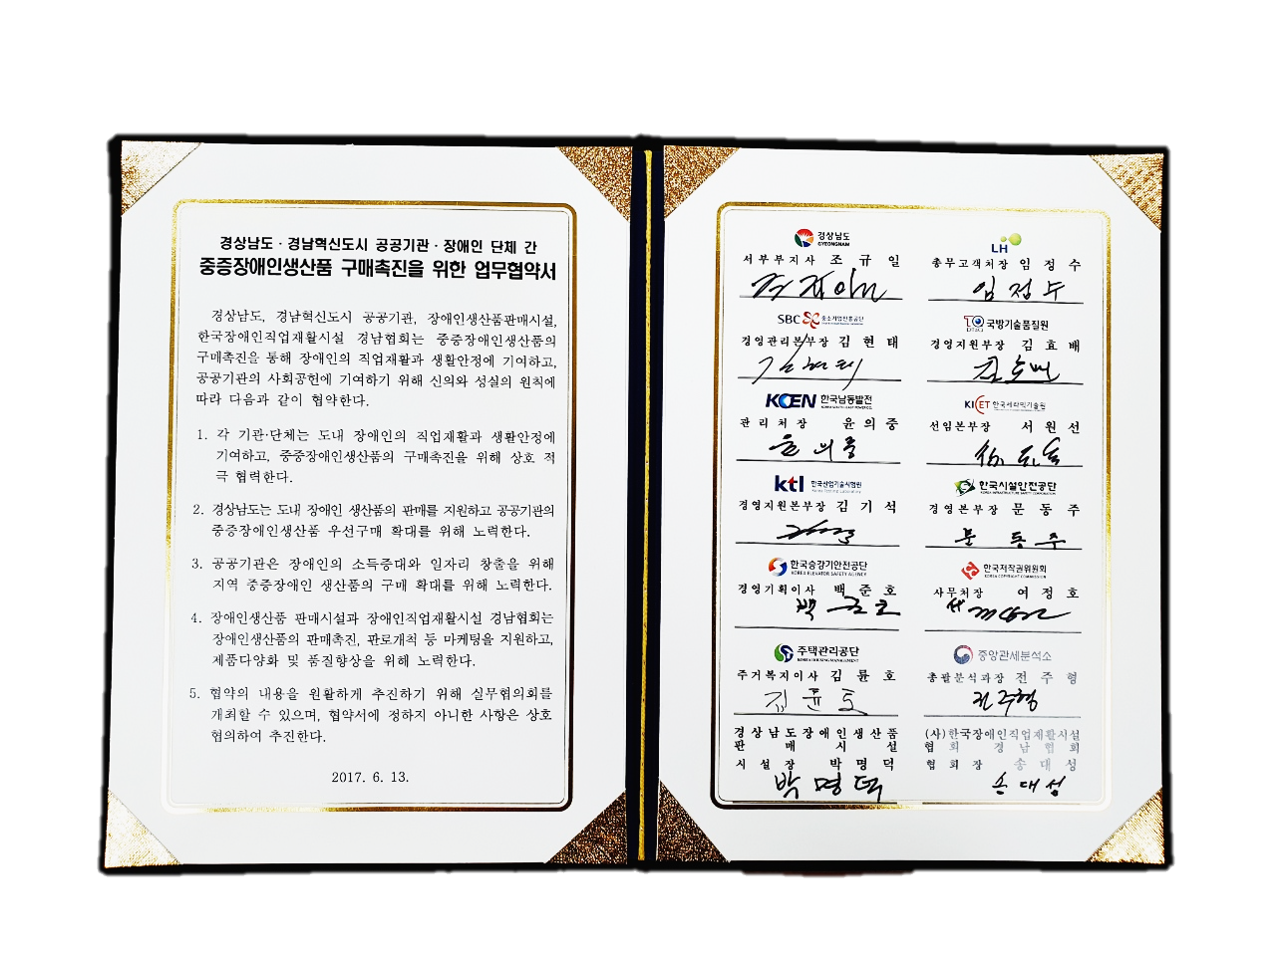 경상남도 · 경남혁신도시 공공기관 · 장애인 단체 간
중증장애인생산품 구매촉진을 위한 업무협약서
경상남도, 경남혁신도시 공공기관, 장애인생산품판매시설,
한국장애인직업재활시설 경남협회는 중증장애인생산품의
구매촉진을 통해 장애인의 직업재활과 생활안정에 기여하고,
공공기관의 사회공헌에 기여하기 위해 신의와 성실의 원칙에
따라 다음과 같이 협약한다.
1. 각 기관·단체는 도내 장애인의 직업재활과 생활안정에
기여하고, 중증장애인생산품의 구매촉진을 위해 상호 적
극 협력한다.
2. 경상남도는 도내 장애인 생산품의 판매를 지원하고 공공기관의
중증장애인생산품 우선구매 확대를 위해 노력한다.
3. 공공기관은 장애인의 소득증대와 일자리 창출을 위해
지역 중증장애인 생산품의 구매 확대를 위해 노력한다.
4. 장애인생산품 판매시설과 장애인직업재활시설 경남협회는
장애인생산품의 판매촉진, 판로개척 등 마케팅을 지원하고,
제품다양화 및 품질향상을 위해 노력한다.
5. 협약의 내용을 원활하게 추진하기 위해 실무협의회를
개최할 수 있으며, 협약서에 정하지 아니한 사항은 상호
협의하여 추진한다.
2017. 6. 13.
경상남도
GYEONGNAM
서부부지사 조규일
LH
총무고객처장 임정수
임정수
SBC 중소기업진흥공단
경영관리본부장 김현태
김현태
국방기술품질원
경영지원부장 김효배
김효배
KOEN 한국남동발전
관리처장 윤의중
윤의중
KICET 한국세라믹기술원
선임본부장 서원선
ktl 한국산업기술시험원
경영지원본부장 김기석
한국시설안전공단
경영본부장 문동주
문동주
한국승강기안전공단
KOREA ELEVATOR SAFETY AGENCY
경영기획이사 백준호
한국저작권위원회
KOREA COPYRIGHT COMMISSION
사무처장 여정호
주택관리공단
KOREA HOUSING MANAGEMENT
주거복지이사 김륜호
김륜호
중앙관세분석소
총괄분석과장 전주형
전주형
경상남도장애인생산품
판매시설
시설장 박명덕
박명덕
(사)한국장애인직업재활시설
협회 경남협회
협회장 송대성
송대성